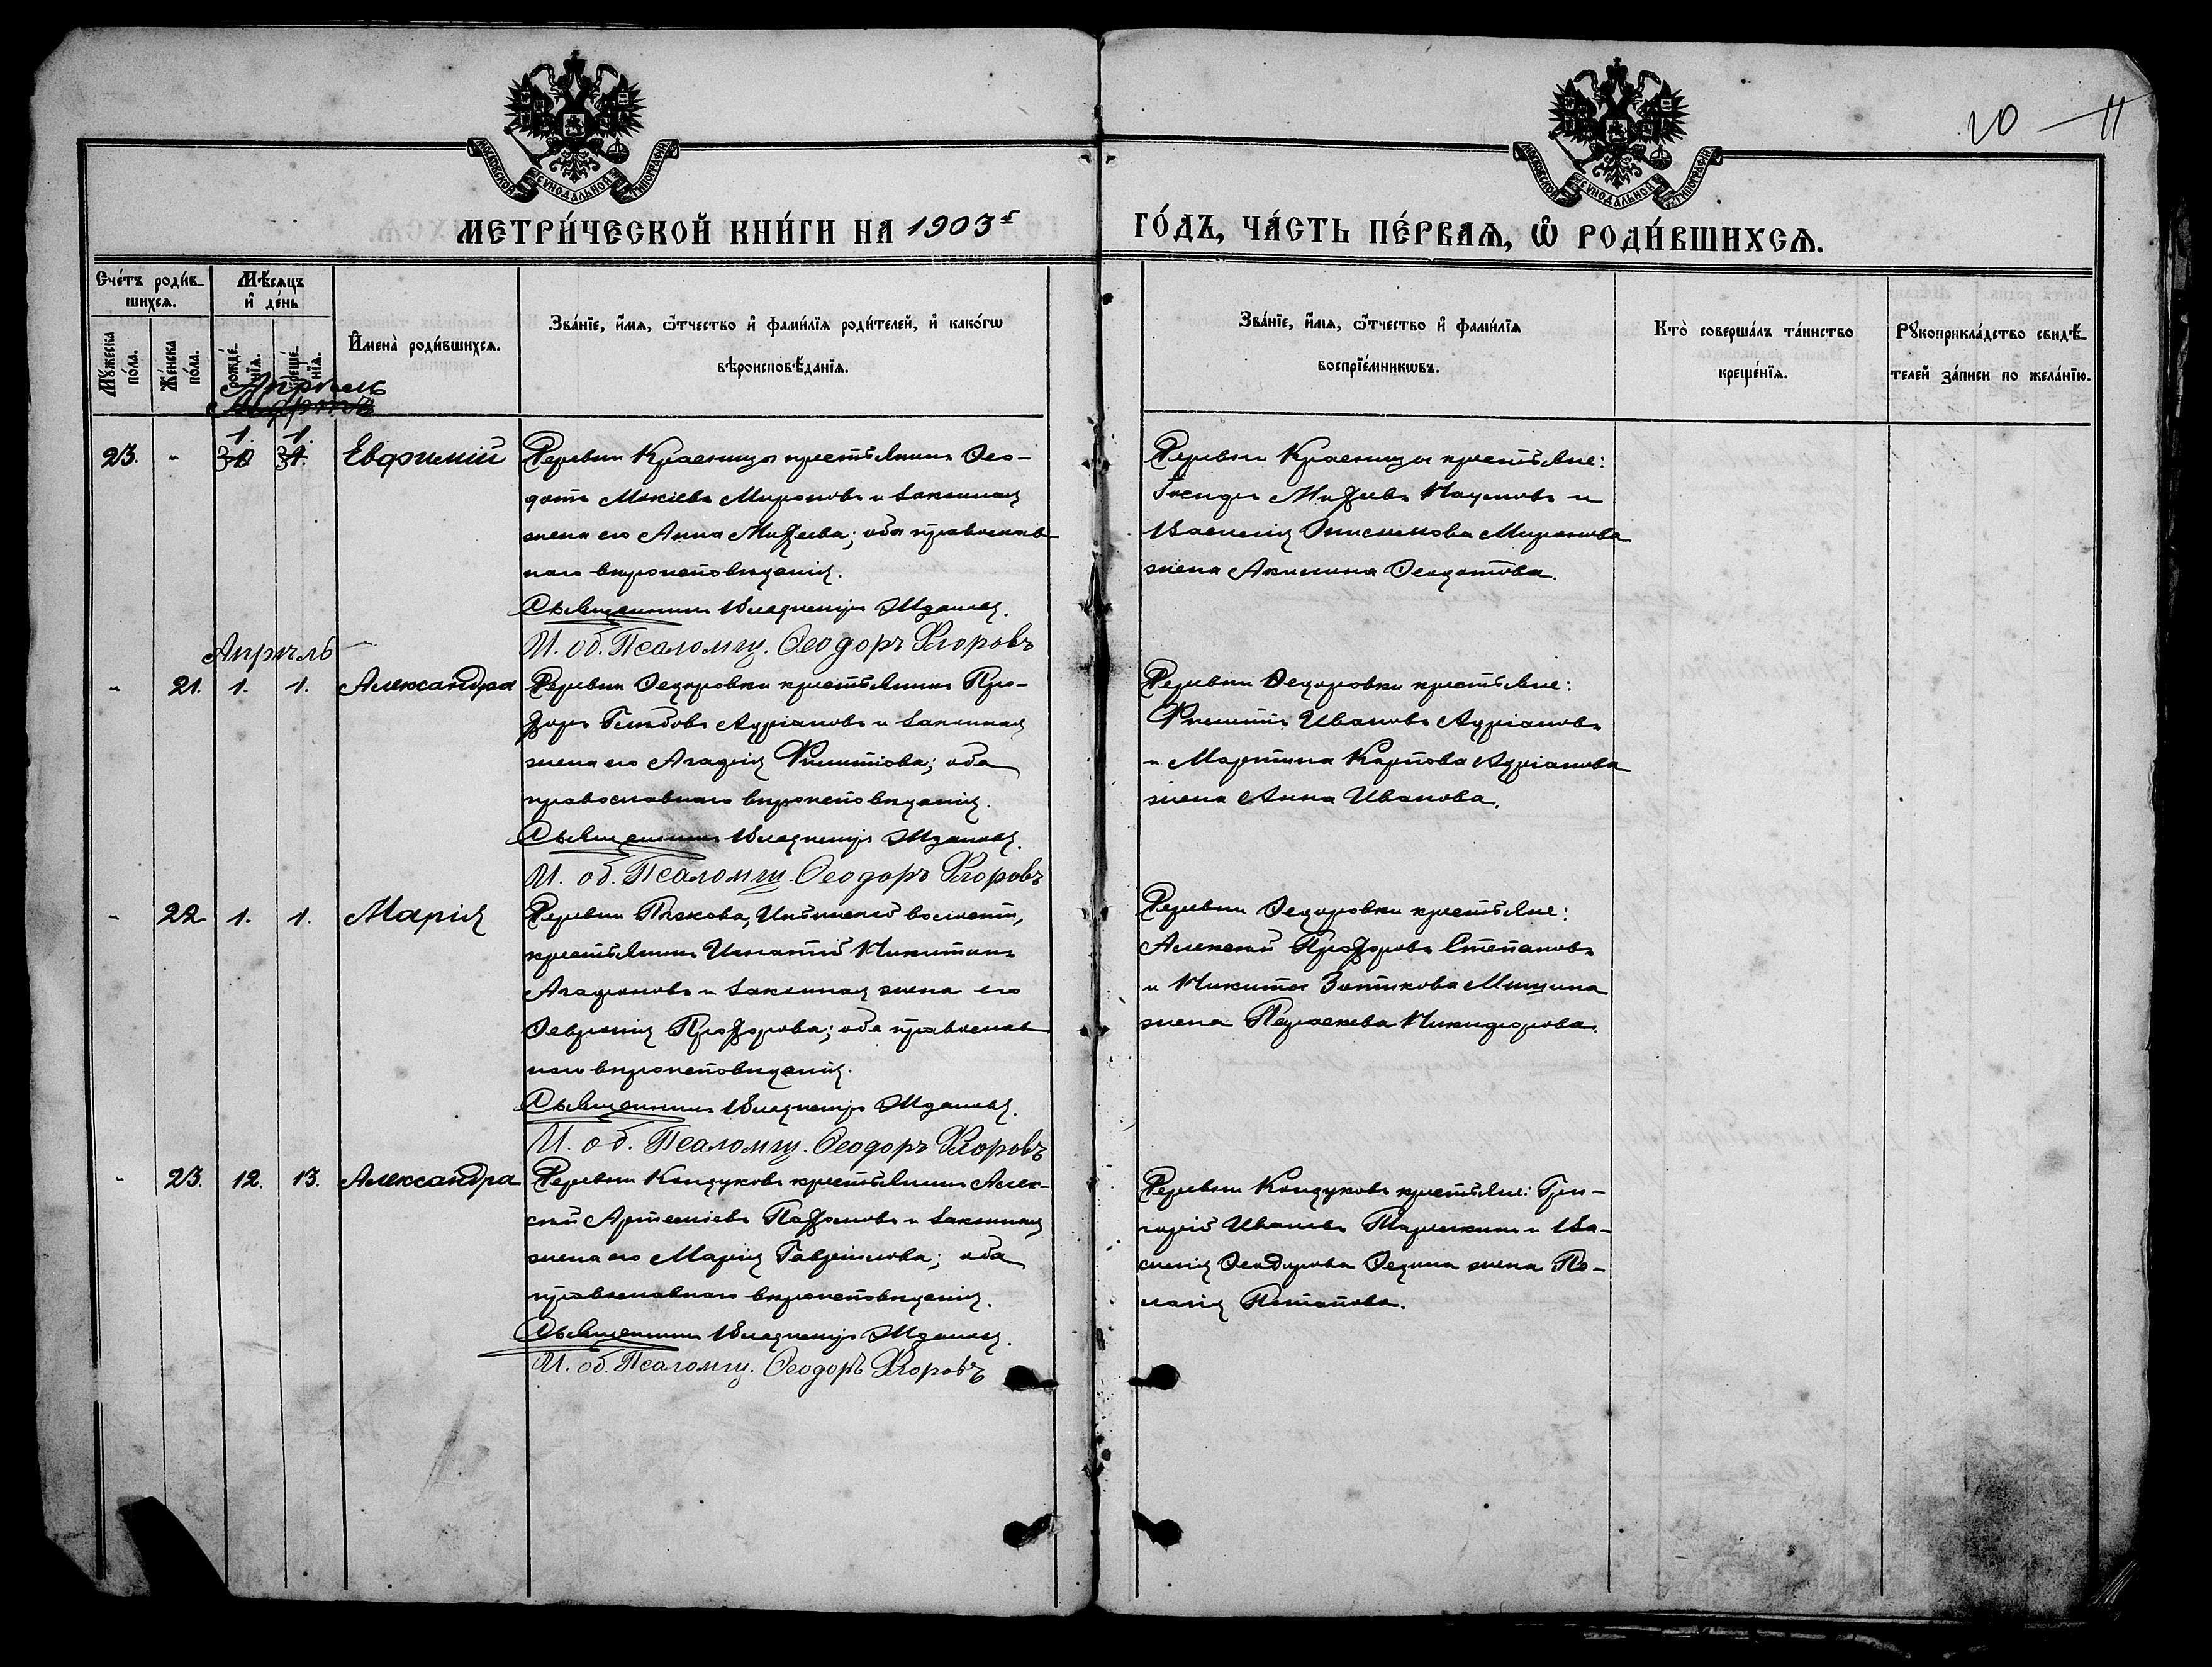 20 — 11
МОСКОВСКОЙ СѴНОДАЛЬНОЙ ТИПОГРАФІИ
МОСКОВСКОЙ СѴНОДАЛЬНОЙ ТИПОГРАФІИ
МЕТРИ́ЧЕСКОЙ КНИ́ГИ НА 1903й
ГО́ДЪ, ЧА́СТЬ ПЕ́РВАѦ, Ѡ҆ РОДИ́ВШИХСѦ.
Сче́тъ роди́в-
шихсѧ.
Мꙋжеска
по́ла.
Же́нска
по́ла.
Мѣ́сѧцъ
и҆ де́нь
рожде́-
нїѧ.
креще́-
нїѧ.
И҆мена̀ роди́вшихсѧ.
Зва́нїе, и҆́мѧ, ѻ҆́тчество и҆ фами́лїѧ роди́телей, и҆ како́гѡ
вѣроисповѣ́данїѧ.
Зва́нїе, и҆́мѧ, ѻ҆́тчество и҆ фами́лїѧ
воспрїе́мникѡвъ.
Кто̀ соверша́лъ та́инство
креще́нїѧ.
Рꙋкоприкла́дство свидѣ́-
телей за́писи по жела́нїю.
Апрѣль
23. - 1. 1. Евфимій
Деревни Красницы крестьянинъ Ѳео-
дотъ Мокіевъ Мироновъ и законная
жена его Анна Моѵсеева; оба православ-
наго вѣроисповѣданія.
Священникъ Владиміръ Ждановъ.
И. об. Псаломщ. Ѳеодоръ Егоровъ
Деревни Красницы крестьяне:
Наумовъ и
Василія Онисимова Миронова
жена Акилина Ѳеодотова.
Апрѣль
- 21. 1. 1. Александра
Деревни Ѳедоровки крестьянинъ Про-
хоръ Глѣбовъ Адріановъ и законная
жена его Агафія Филиппова; оба
православнаго вѣроисповѣданія.
Священникъ Владиміръ Ждановъ.
И. об. Псаломщ. Ѳеодоръ Егоровъ
Деревни Ѳедоровки крестьяне:
Филиппъ Ивановъ Адріановъ
и Мартина Карпова Адріанова
жена Анна Иванова.
- 22 1. 1. Марія
Деревни волости,
крестьянинъ Игнатій Никитинъ
Агафоновъ и законная жена его
Ѳевронія Прохорова; оба православ
наго вѣроисповѣданія.
Священникъ Владиміръ Ждановъ.
И. об. Псаломщ. Ѳеодоръ Егоровъ
Деревни Ѳедоровки крестьяне:
Алексѣй Прохоровъ Степановъ
и Никиты Зотикова Мишина
жена Параскева Никифорова.
- 23. 12. 13. Александра
Деревни Кондуковъ крестьянинъ Алек-
сѣй Артеміевъ и законная
жена его Марія Гавріилова; оба
православнаго вѣроисповѣданія.
Священникъ Владиміръ Ждановъ.
И. об. Псаломщ. Ѳеодоръ Егоровъ
Деревни Кондуковъ крестьяне: Гри-
горій Ивановъ и Ва-
силія Ѳеодорова Ѳедина жена Пе-
лагія Потапова.